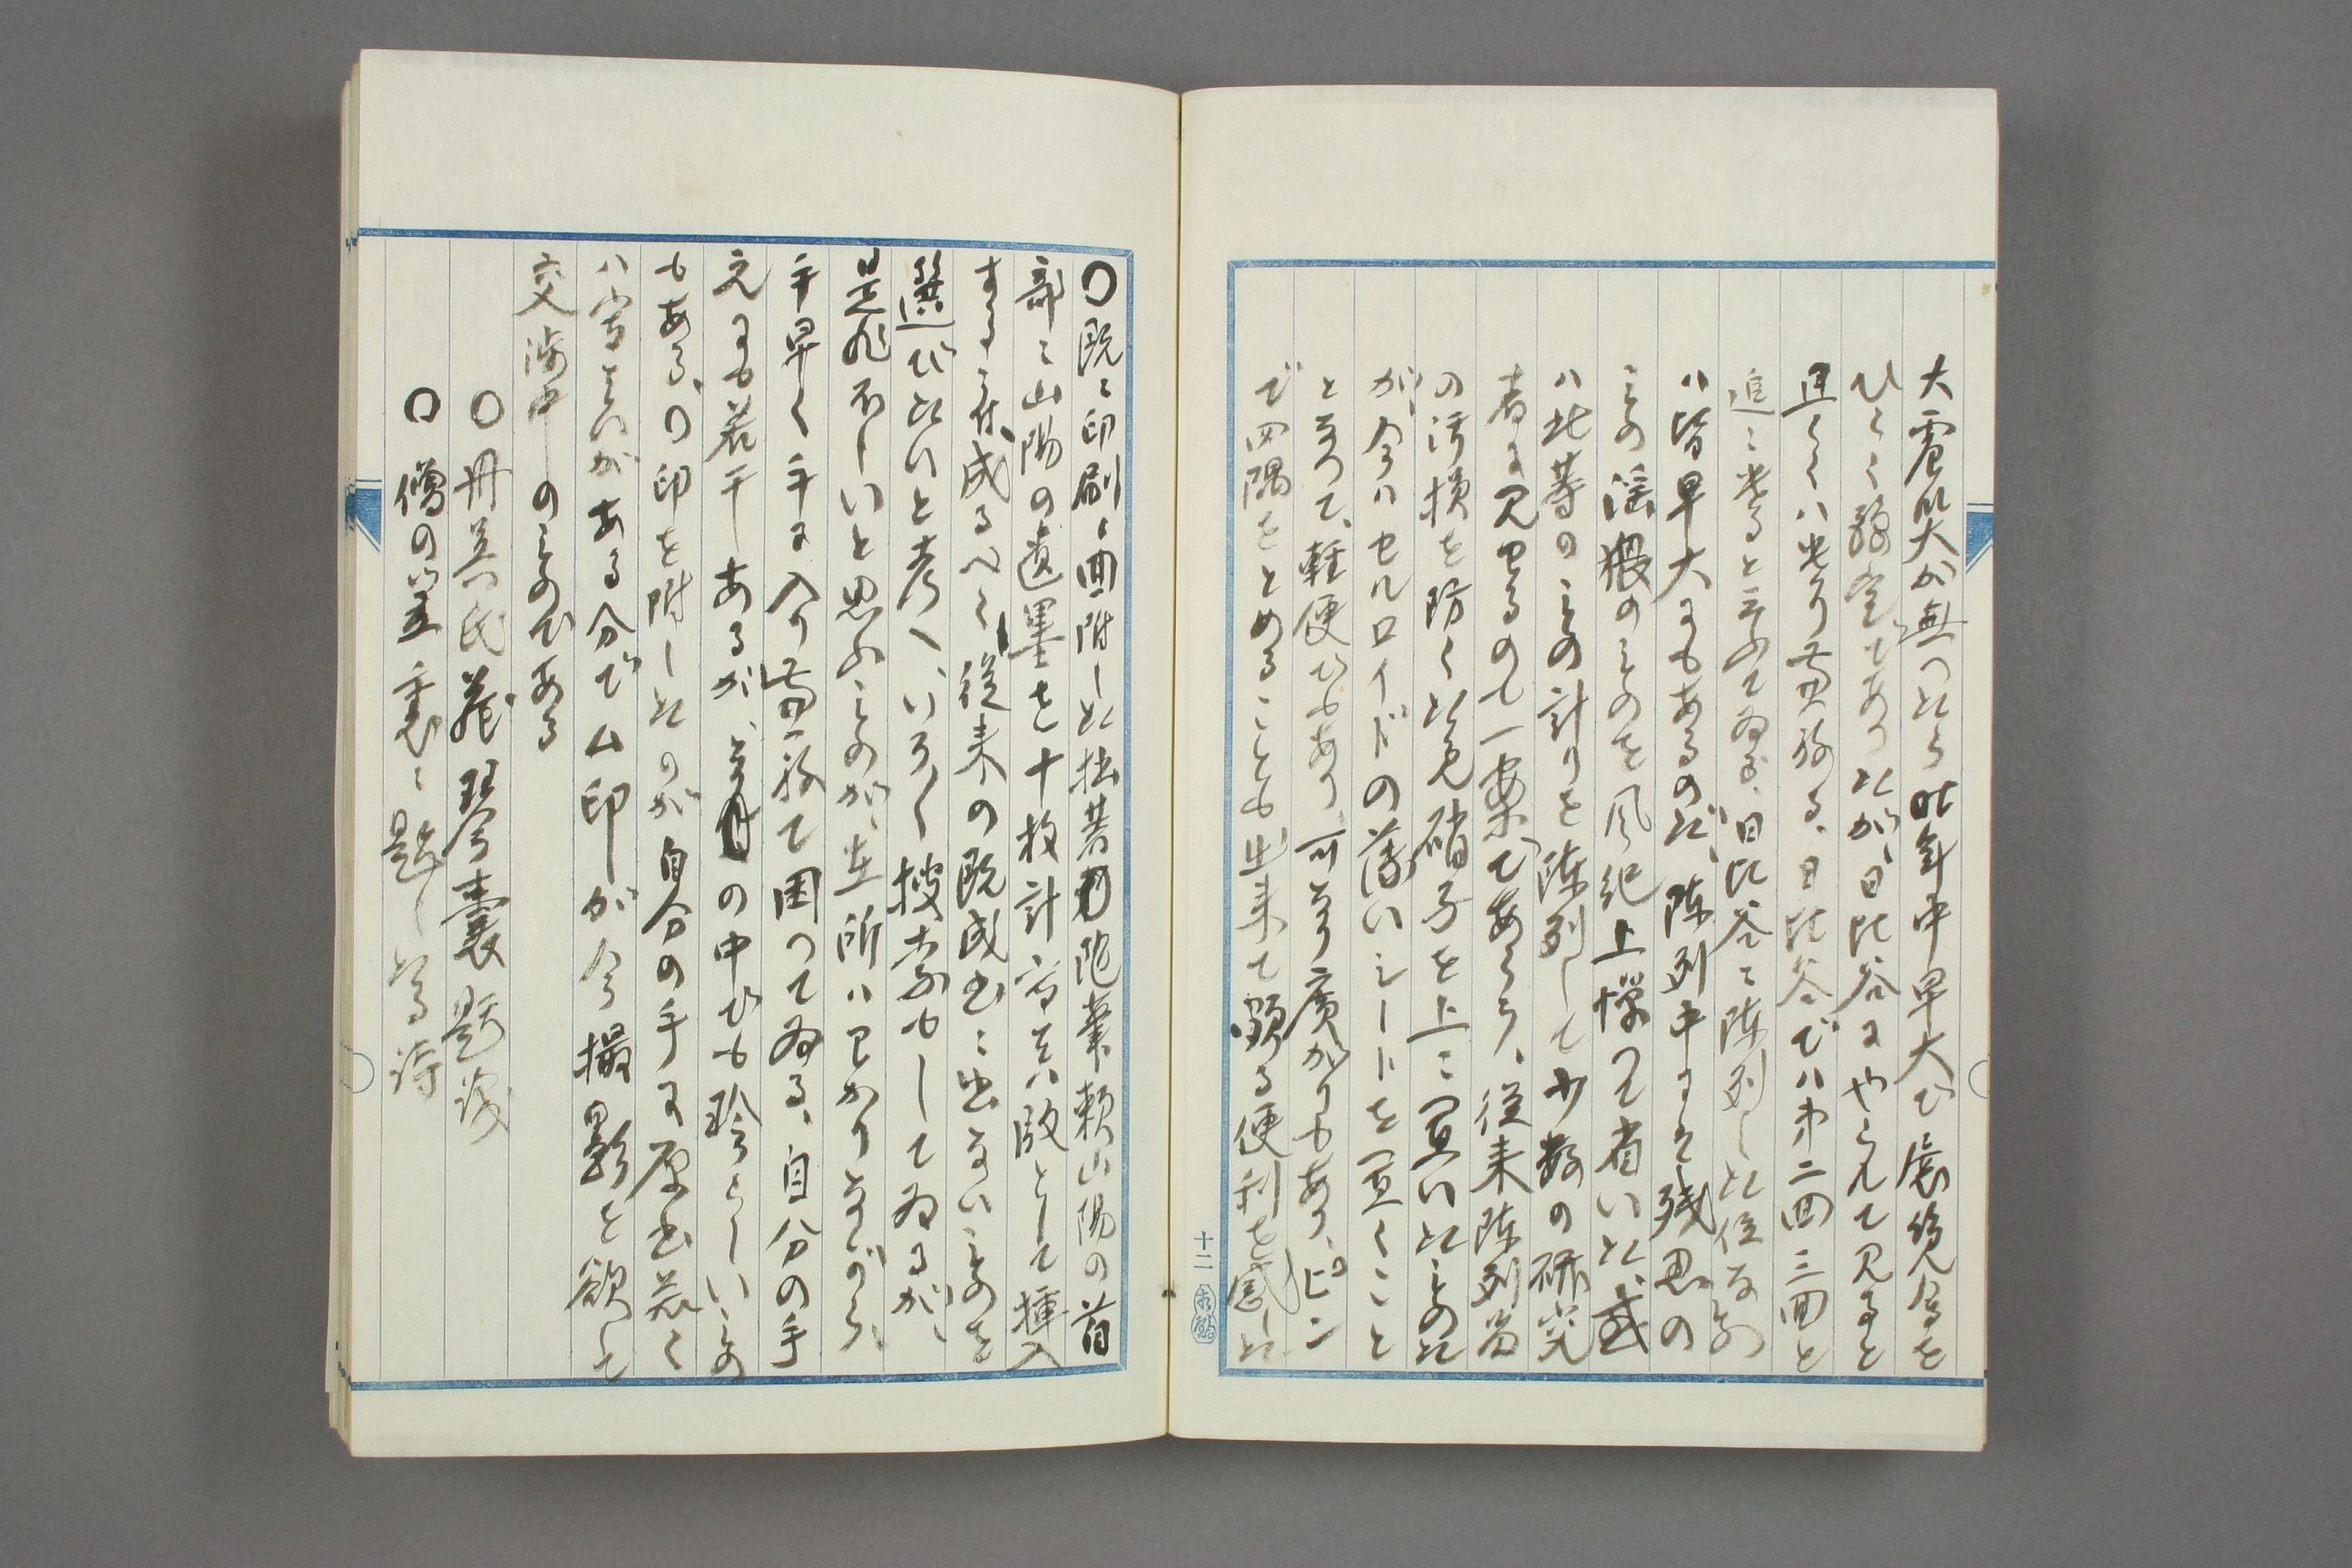 大震災が無つたら昨年中早大で展覧会を
ひらく予定であつたが、日比谷にやられて見ると
追々ハ出す事になる、日比谷でハ第二回三回と
追々出ると云ふてゐる、日比谷に陳列した位な物
ハ皆早大にもあるのだ、陳列中にも残忍の
もの淫猥のものを風紀上憚つて省いた、或
ハ此等のもの計りを陳列して少数の研究
者に見せるのも一案であらう、従来陳列品
の汚損を防ぐ為硝子を上に置いたものだ
が、今ハセルロイドの薄いシートを置くこと
となつて、軽便でもあり、可なり廣がりもあり、ピン
で四隅をとめることも出来て頗る便利を感した
十二
〇既に印刷に回附した拙著 陀葉頼山陽の首
部に山陽の遺墨を十枚計写真版として挿入
する条件、成るべく従来の既成書に出ないものを
選びたいと考へ、いろ〱捜索もしてゐるが、
是非ホしいと思ふものが、在所ハ分かりながら、
手早く手に入り兼ねて困つてゐる、自分の手
元にも若干あるが、 の中でも珍らしいもの
もある、〇印を附したのが自分の手に原書若く
ハ写真がある分で△印が今撮影を欲して
交渉中のものである
〇 丹羽氏蔵琴嚢題溌
〇 僧の 裏に題したる詩